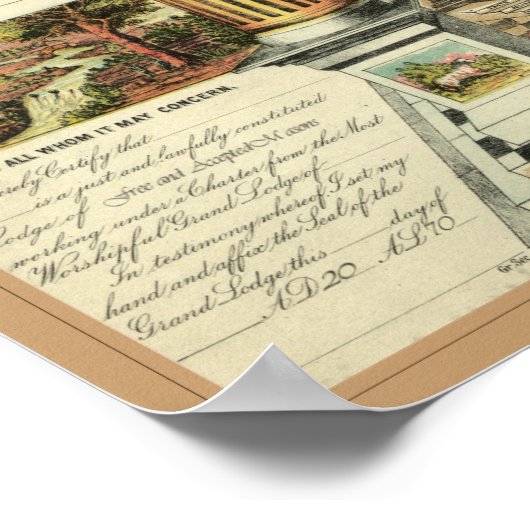 ALL WHOM IT MAY CONCERN.
ereby Certify that
is a just and lawfully constituted
Lodge of Free and Accepted Masons
working under a Charter from the Most
Worshipful Grand Lodge of
In testimony whereof I set my
hand and affix the Seal of the
Grand Lodge this day of
AD20 AL70
Gr. Sec